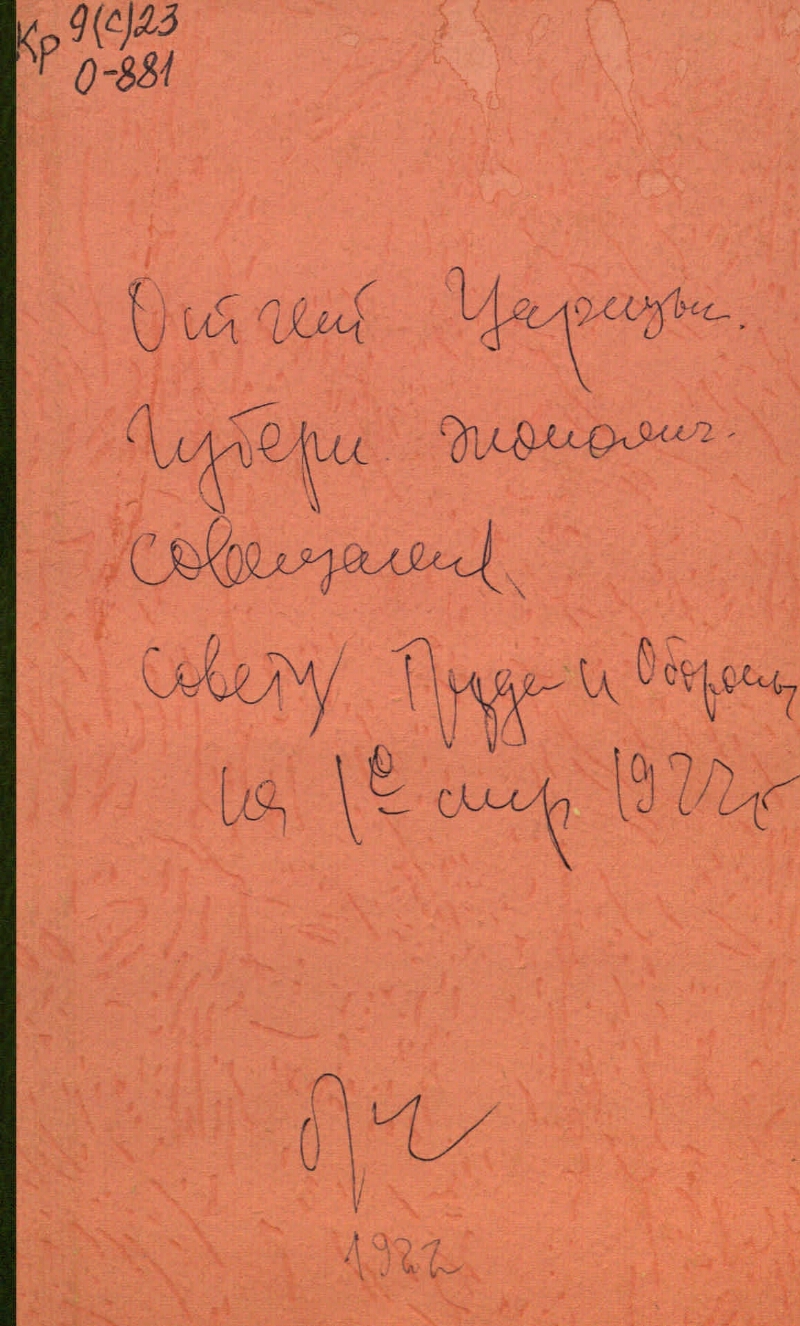 Кр 9(С)23
О-881
Отчет Царицын.
Губерн. экономич.
совещания
Совету Труда и Обороны
на 1е апр. 1922 г
1922